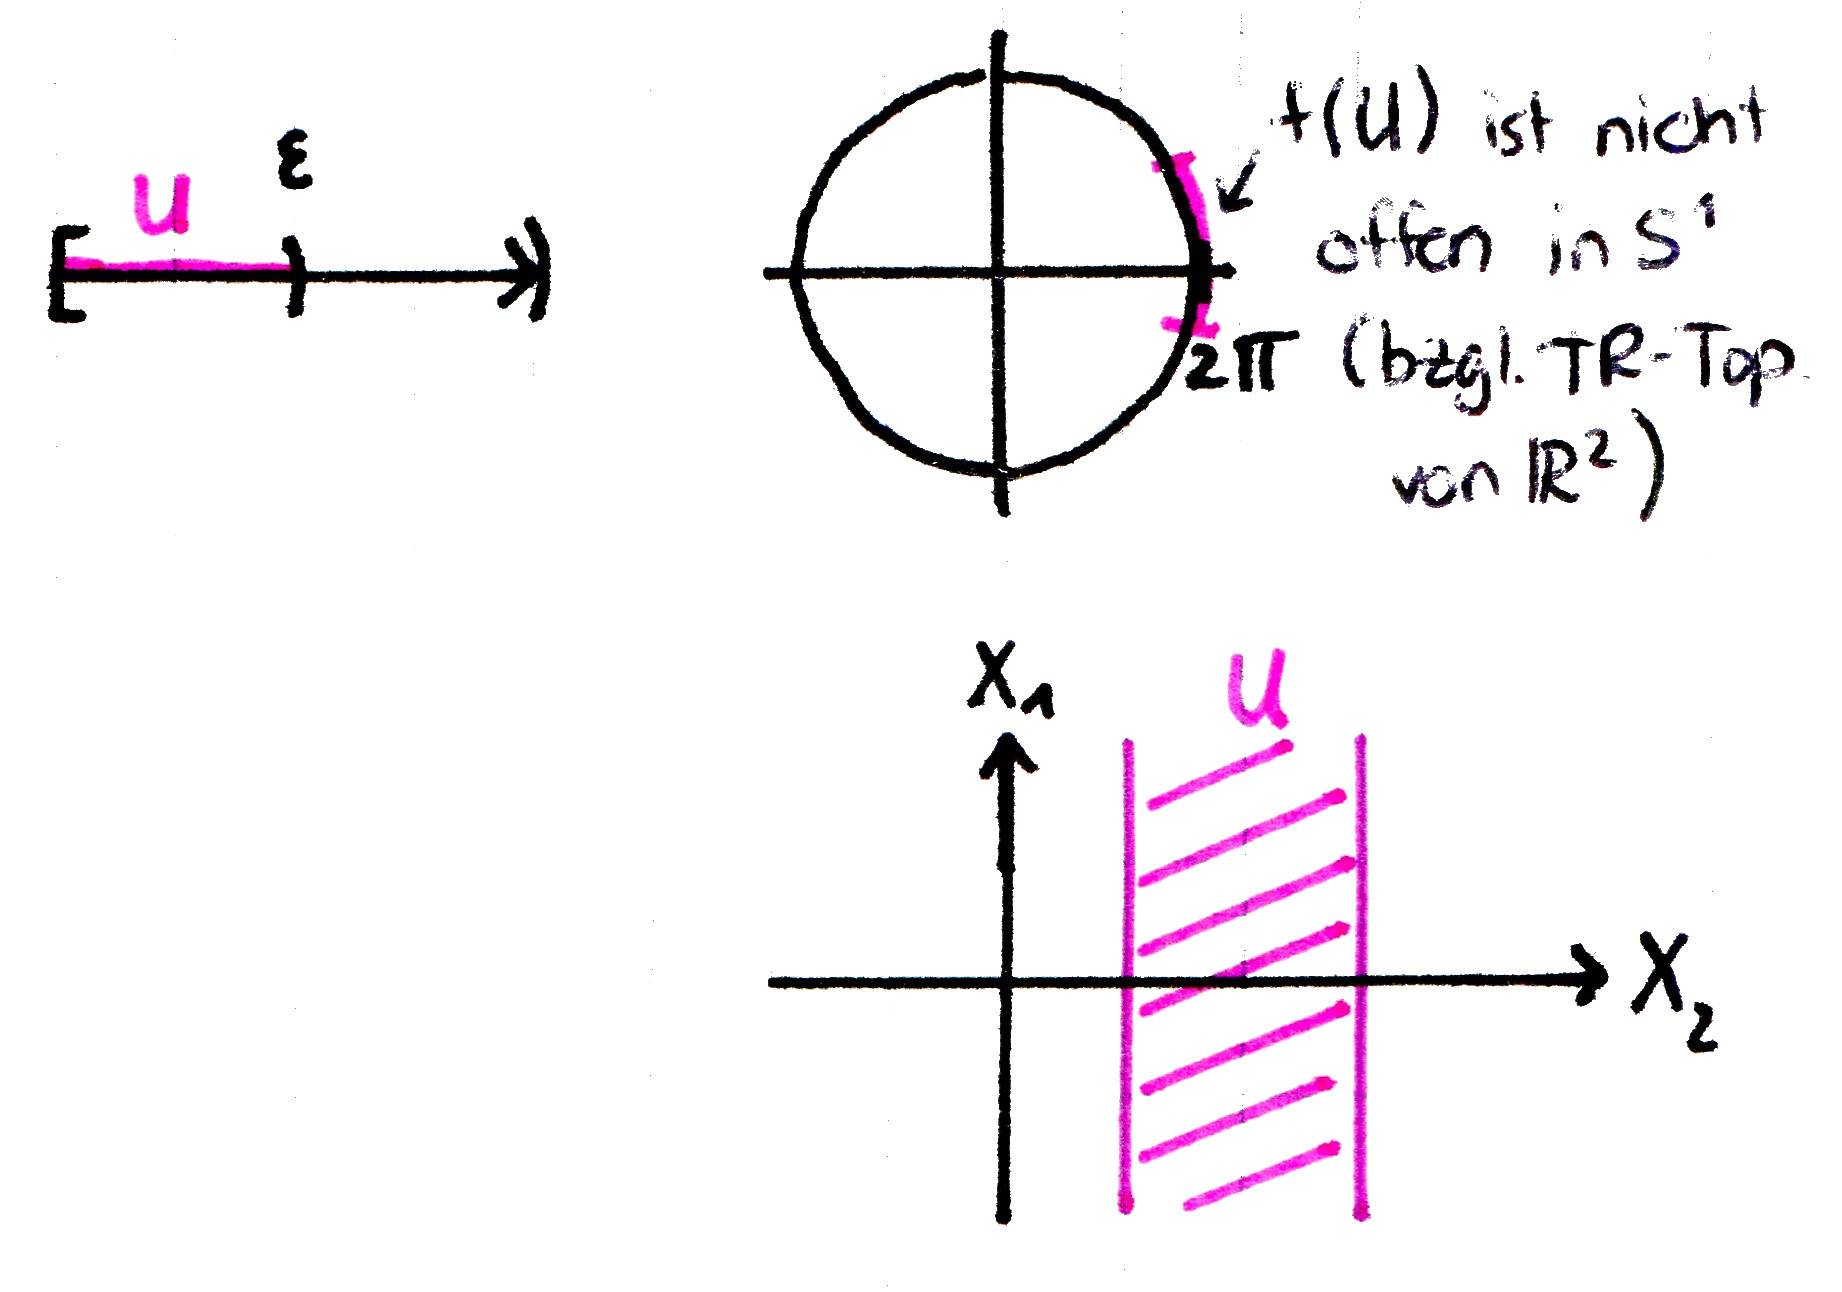 U
ε
f(U) ist nicht
offen in S¹
2π (bzgl. TR-Top.
von ℝ²)
X₁
U
X₂